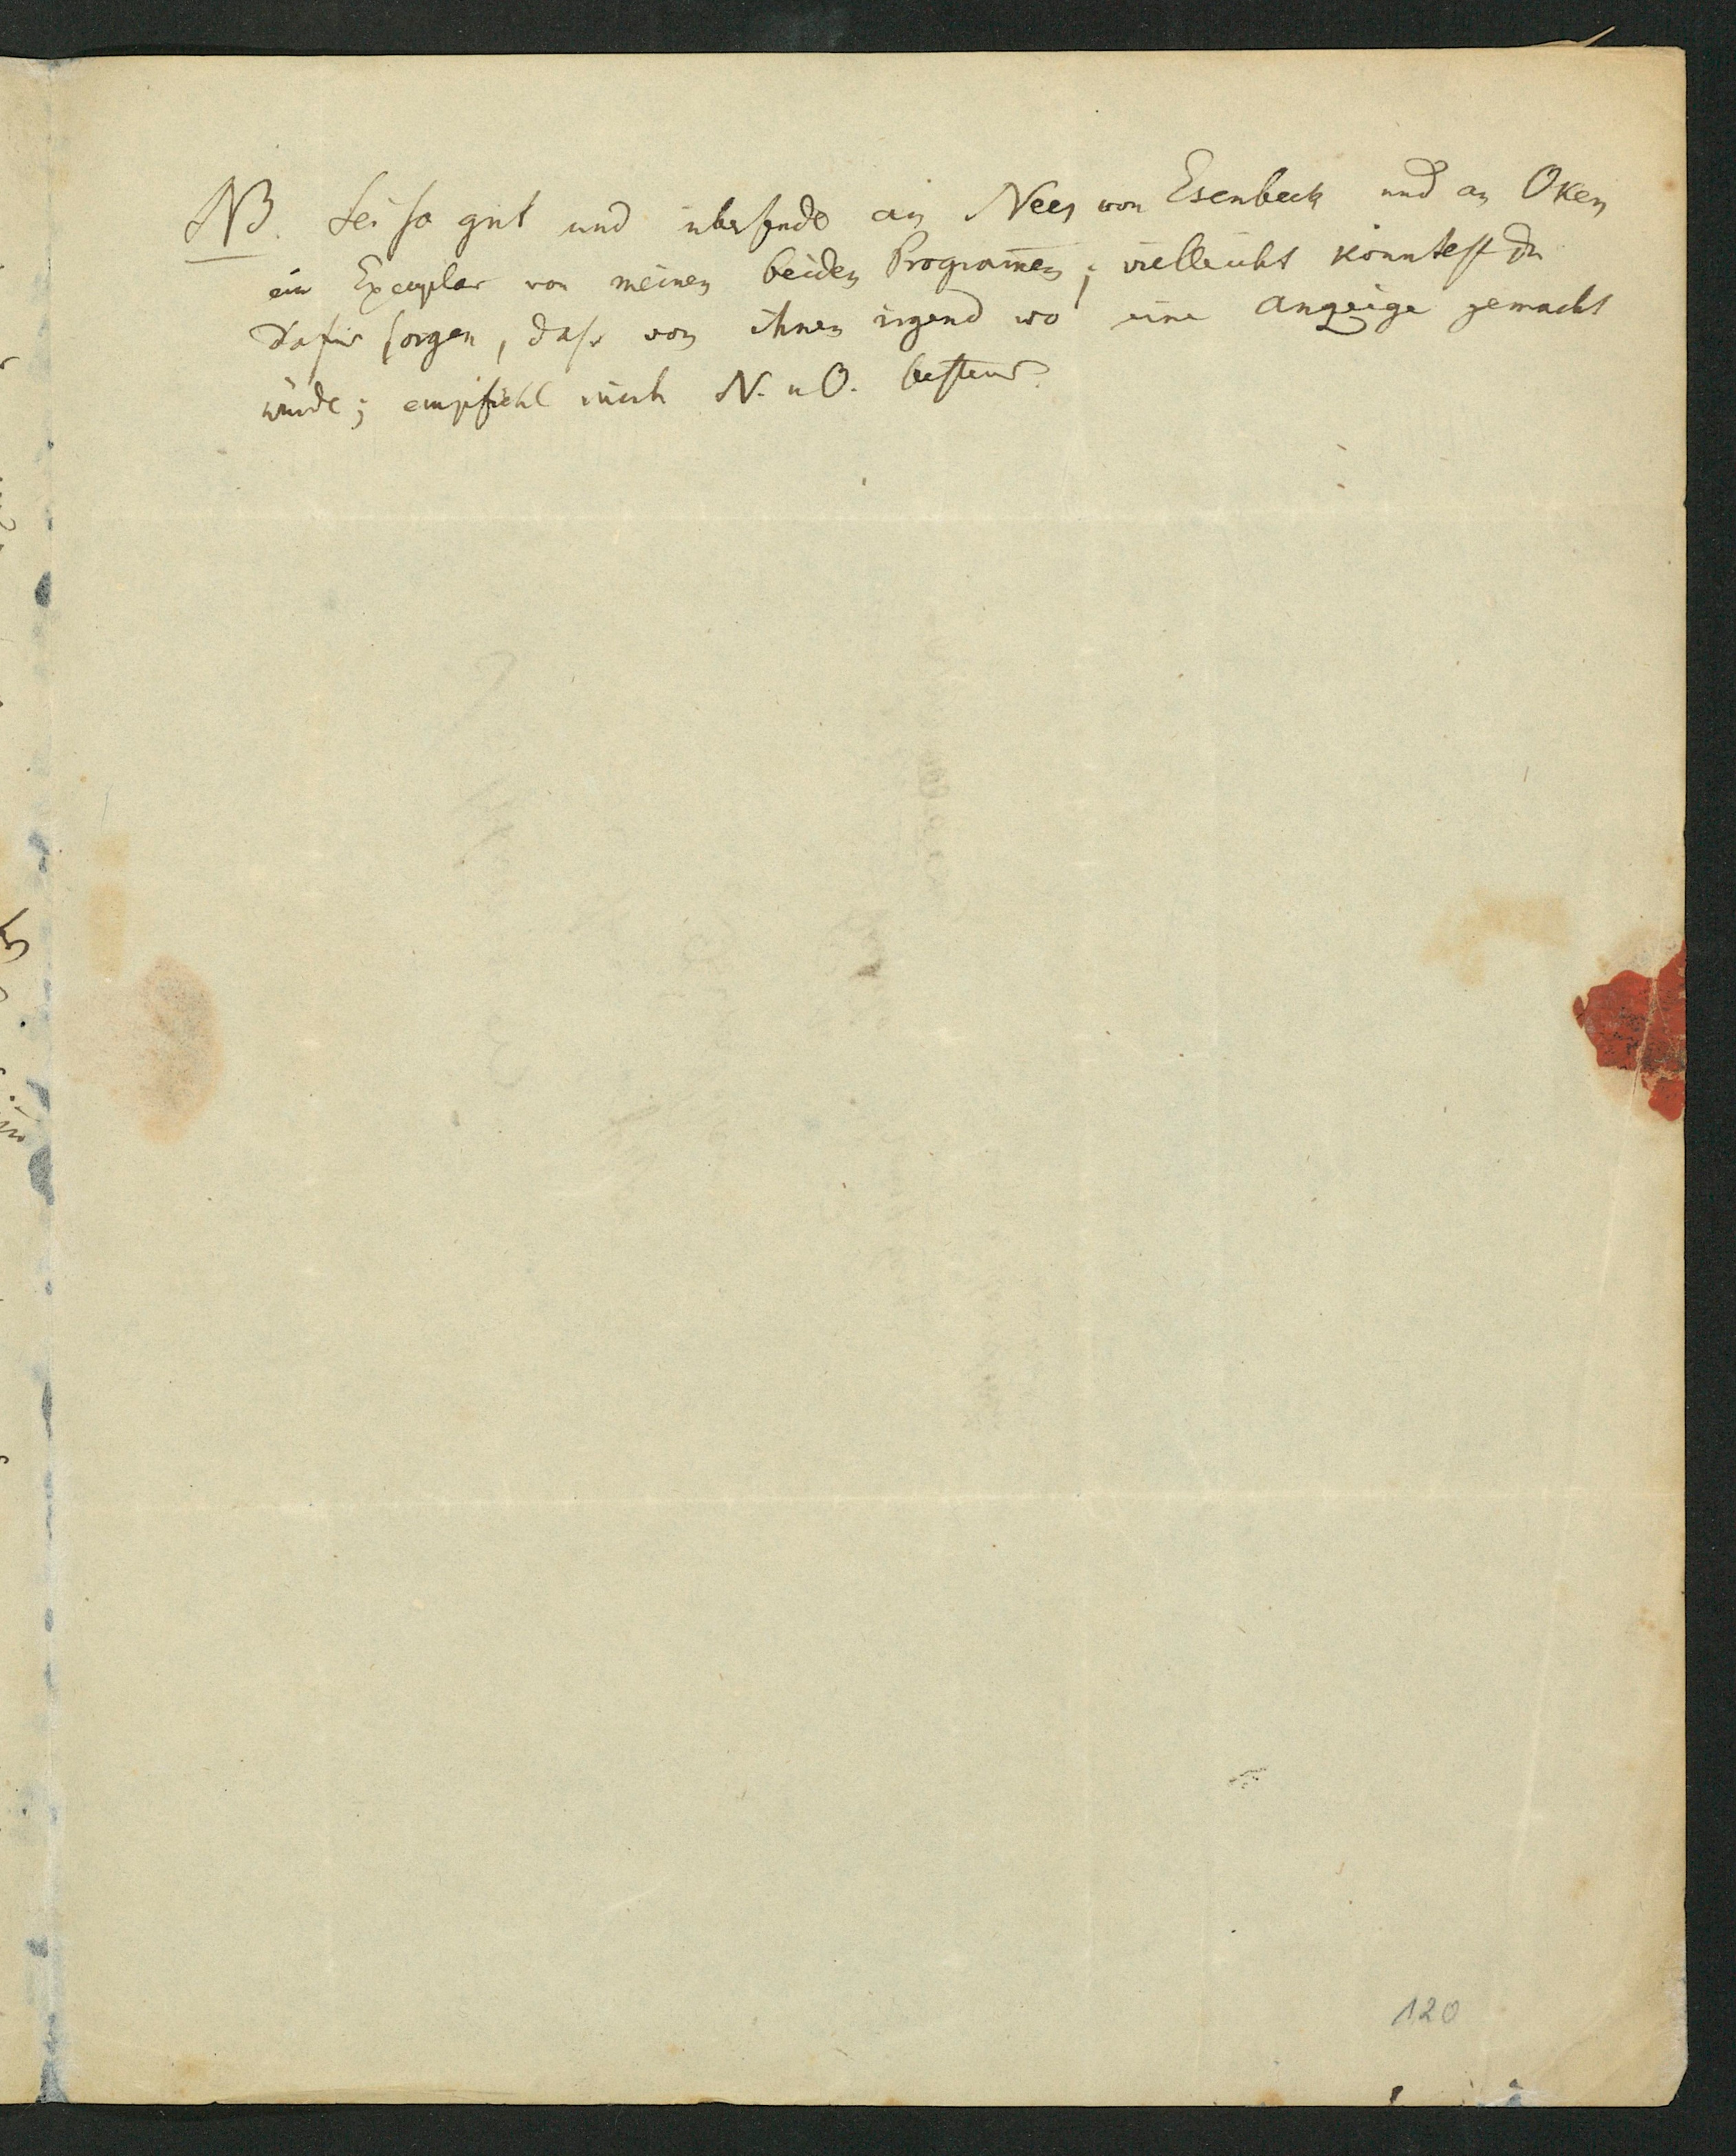 NB. Sei so gut und übersende an Nees von Esenbeck und an Oken
ein Exemplar von meinen beiden Programmen; vielleicht könntest du
dafür sorgen, dass von ihnen irgend wo eine Anzeige gemacht
würde; empfiehl mich N. u O. bestens.
120